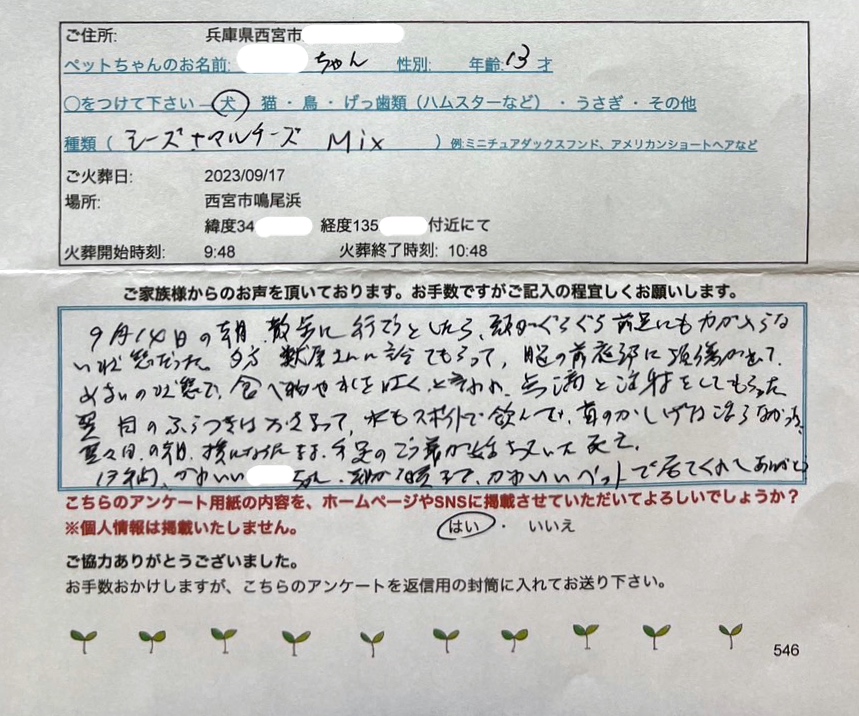 ご住所: 兵庫県西宮市
ペットちゃんのお名前: ちゃん 性別: 年齢: 13 才
○をつけて下さい 犬 猫・鳥・げっ歯類（ハムスターなど）・うさぎ・その他
種類（ シーズーマルチーズ Mix ）例:ミニチュアダックスフンド、アメリカンショートヘアなど
ご火葬日: 2023/09/17
場所: 西宮市鳴尾浜
緯度34 経度135 付近にて
火葬開始時刻: 9:48 火葬終了時刻: 10:48
ご家族様からのお声を頂いております。お手数ですがご記入の程宜しくお願いします。
9月14日の朝、散歩に行こうとしたら、頭がぐらぐら前足にも力が入らな
い状態だった 夕方 さんに診てもらって、脳の前庭部に
めまいの状態で、食べ物や を吐くと言われ、点滴と注射をしてもらった
翌日のふらつきはおさまって、水もスポイトで飲んで、首のかしげは治らなかった
翌々日の朝、横になったまま、手足の
13年間、かわいい ちゃん、最後まで、かわいいペットで居てくれてありがとう
こちらのアンケート用紙の内容を、ホームページやSNSに掲載させていただいてよろしいでしょうか？
※個人情報は掲載いたしません。 はい ・ いいえ
ご協力ありがとうございました。
お手数おかけしますが、こちらのアンケートを返信用の封筒に入れてお送り下さい。
546